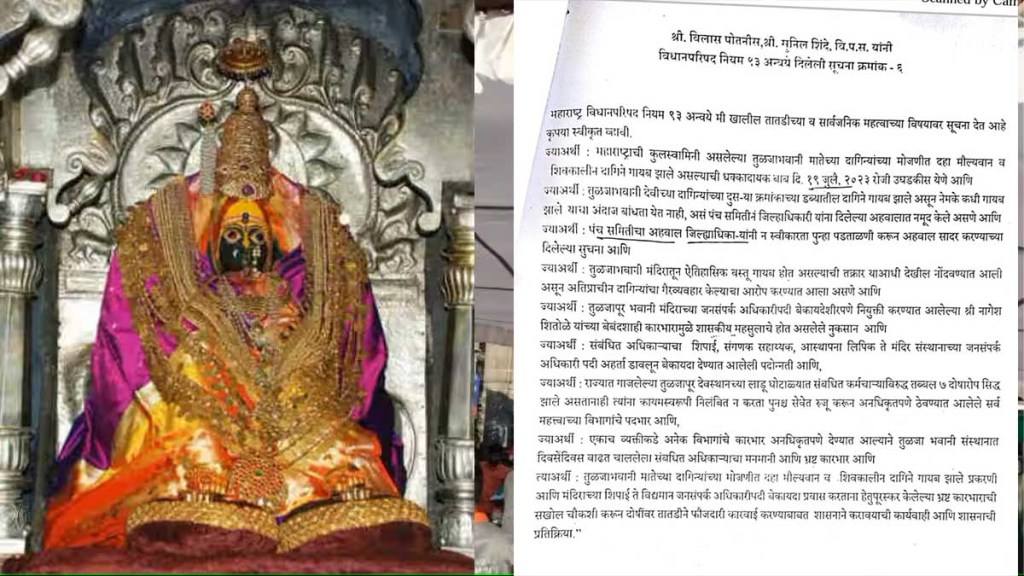 Scanned by Cam
श्री. विलास पोतनीस,श्री. सुनिल शिंदे, वि.प.स. यांनी
विधानपरिषद नियम ९३ अन्वये दिलेली सूचना क्रमांक - ६
महाराष्ट्र विधानपरिषद नियम ९३ अन्वये मी खालील तातडीच्या व सार्वजनिक महत्वाच्या विषयावर सूचना देत आहे
कृपया स्वीकृत व्हावी.
ज्याअर्थी : महाराष्ट्राची कुलस्वामिनी असलेल्या तुळजाभवानी मातेच्या दागिन्यांच्या मोजणीत दहा मौल्यवान व
शिवकालीन दागिने गायब झाले असल्याची धक्कादायक बाब दि. १९ जुलै, २०२३ रोजी उघडकीस येणे आणि
ज्याअर्थी : तुळजाभवानी देवीच्या दागिन्यांच्या दुस-या क्रमांकाच्या डब्यातील दागिने गायब झाले असून नेमके कधी गायब
झाले याचा अंदाज बांधता येत नाही, असं पंच समितीनं जिल्हाधिकारी यांना दिलेल्या अहवालात नमूद केले असणे आणि
ज्याअर्थी : पंच समितीचा अहवाल जिल्हाधिका-यांनी न स्वीकारता पुन्हा पडताळणी करून अहवाल सादर करण्याच्या
दिलेल्या सुचना आणि
ज्याअर्थी : तुळजाभवानी मंदिरातून ऐतिहासिक वस्तू गायब होत असल्याची तक्रार याआधी देखील नोंदवण्यात आली
असून अतिप्राचीन दागिन्यांचा गैरव्यवहार केल्याचा आरोप करण्यात आला असणे आणि
ज्याअर्थी : तुळजापूर भवानी मंदिराच्या जनसंपर्क अधिकारीपदी बेकायदेशीरपणे नियुक्ती करण्यात आलेल्या श्री नागेश
शितोळे यांच्या बेबंदशाही कारभारामुळे शासकीय महसुलाचे होत असलेले नुकसान आणि
ज्याअर्थी : संबंधित अधिकाऱ्याचा शिपाई, संगणक सहाय्यक, आस्थापना लिपिक ते मंदिर संस्थानाच्या जनसंपर्क
अधिकारी पदी अहर्ता डावलून बेकायदा देण्यात आलेली पदोन्नती आणि,
ज्याअर्थी : राज्यात गाजलेल्या तुळजापूर देवस्थानच्या लाडू घोटाळ्यात संबधित कर्मचाऱ्याविरुद्ध तब्बल ७ दोषारोप सिद्ध
झाले असतानाही त्यांना कायमस्वरूपी निलंबित न करता पुनश्च सेवेत रुजू करून अनधिकृतपणे ठेवण्यात आलेले सर्व
महत्त्वाच्या विभागांचे पदभार आणि,
ज्याअर्थी : एकाच व्यक्तीकडे अनेक विभागांचे कारभार अनधिकृतपणे देण्यात आल्याने तुळजा भवानी संस्थानात
दिवसेंदिवस वाढत चाललेला संबंधित अधिकाऱ्याचा मनमानी आणि भ्रष्ट कारभार आणि
त्याअर्थी : तुळजाभवानी मातेच्या दागिन्यांच्या मोजणीत दहा मौल्यवान व शिवकालीन दागिने गायब झाले प्रकरणी
आणि मंदिराच्या शिपाई ते विद्यमान जनसंपर्क अधिकारीपदी बेकायदा प्रवास करताना हेतुपूरस्कर केलेल्या भ्रष्ट कारभाराची
सखोल चौकशी करून दोषींवर तातडीने फौजदारी कारवाई करण्याबाबत शासनाने करावयाची कार्यवाही आणि शासनाची
प्रतिक्रिया."